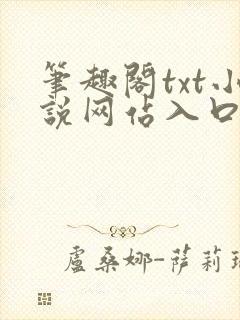 筆趣閣txt小
説网佔入口
盧桑娜-萨莉琺